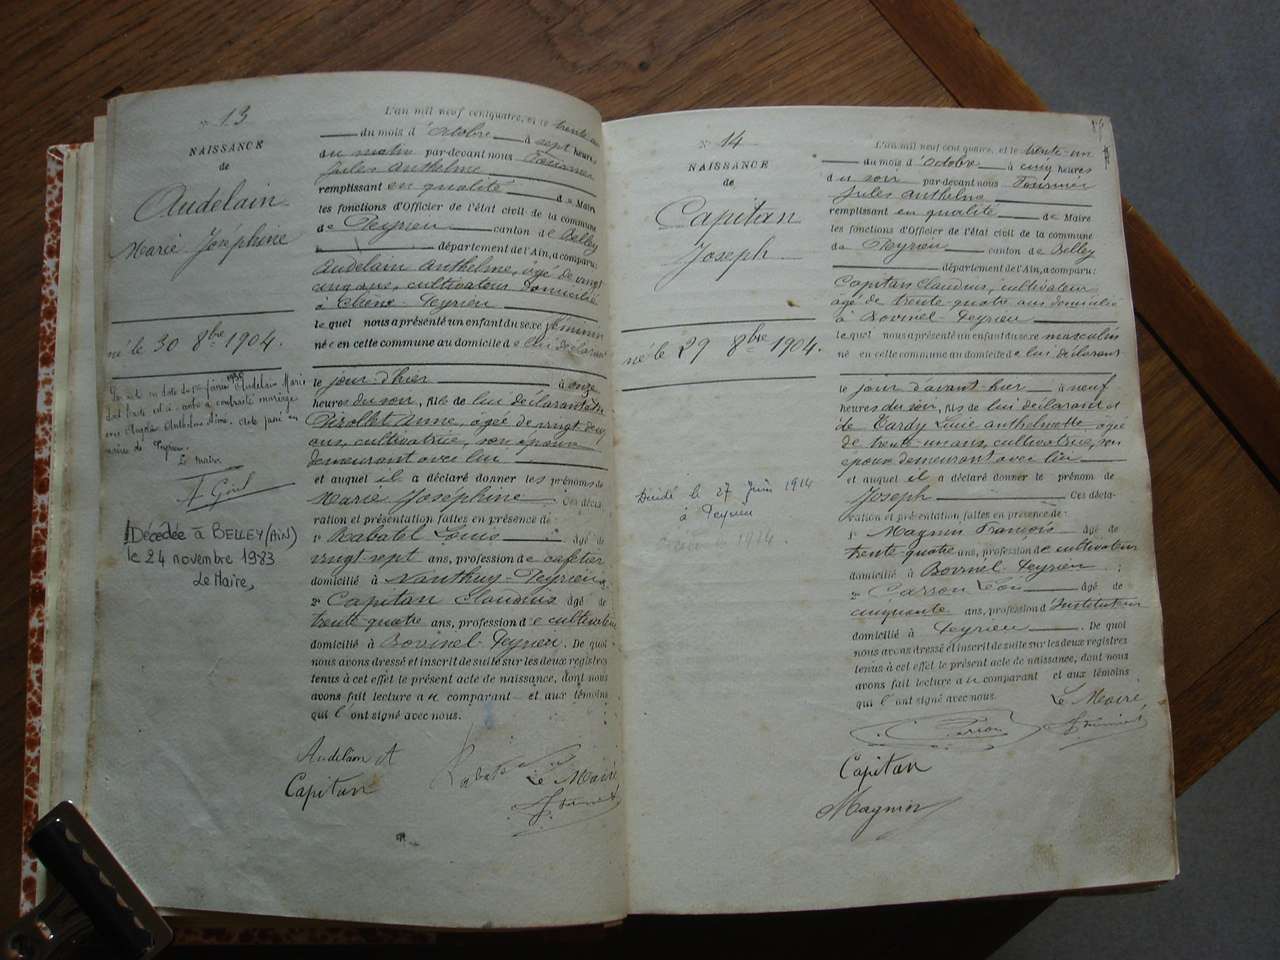 N° 13
NAISSANCE
de
Audelain
Marie Joséphine
né le 30 8bre 1904.
Audelain Marie
mariage
Le Maire
Décédée à BELLEY (AIN)
le 24 novembre 1983
Le Maire,
L'an mil neuf cent quatre, et le trente
du mois d'octobre à sept heures
du matin par-devant nous Fournier
Jules Anthelme
remplissant en qualité de Maire
les fonctions d'Officier de l'état civil de la commune
de Peyrieu canton de Belley
département de l'Ain, a comparu:
Audelain Anthelme, âgé de vingt
cinq ans, cultivateur domicilié
à Peyrieu
lequel nous a présenté un enfant du sexe féminin
née en cette commune au domicile de lui déclarant
le jour d'hier à onze
heures du soir, fils de lui déclarant et de
Pirollet Anne, âgée de vingt deux
ans, cultivatrice, son épouse
demeurant avec lui
et auquel il a déclaré donner les prénoms de
Marie Joséphine Ces décla-
ration et présentation faites en présence de:
1° Rabatel Louis âgé de
vingt-sept ans, profession de cafetier
domicilié à Nanthuy-Peyrieu
2° Capitan Claudius âgé de
trente-quatre ans, profession de cultivateur
domicilié à Bovinel-Peyrieu. De quoi
nous avons dressé et inscrit de suite sur les deux registres
tenus à cet effet le présent acte de naissance, dont nous
avons fait lecture au comparant et aux témoins
qui l'ont signé avec nous.
Audelain A
Rabatel
Le Maire
Capitan
N° 14
NAISSANCE
de
Capitan
Joseph
né le 29 8bre 1904.
Décédé le 27 Juin 1914
à Peyrieu
L'an mil neuf cent quatre, et le trente-un
du mois d'octobre à cinq heures
du soir par-devant nous Fournier
Jules Anthelme
remplissant en qualité de Maire
les fonctions d'Officier de l'état civil de la commune
de Peyrieu canton de Belley
département de l'Ain, a comparu:
Capitan Claudius, cultivateur
âgé de trente-quatre ans domicilié
à Bovinel-Peyrieu
lequel nous a présenté un enfant du sexe masculin
né en cette commune au domicile de lui déclarant
le jour d'avant-hier à neuf
heures du soir, fils de lui déclarant et
de Tardy Lucie Anthelmette âgée
de trente-un ans, cultivatrice, son
épouse demeurant avec lui
et auquel il a déclaré donner le prénom de
Joseph Ces décla-
ration et présentation faites en présence de:
1° Magnin François âgé de
trente-quatre ans, profession de cultivateur
domicilié à Bovinel-Peyrieu;
2° âgé de
cinquante ans, profession d'Instituteur
domicilié à Peyrieu. De quoi
nous avons dressé et inscrit de suite sur les deux registres
tenus à cet effet le présent acte de naissance, dont nous
avons fait lecture au comparant et aux témoins
qui l'ont signé avec nous.
Le Maire,
Capitan
Magnin